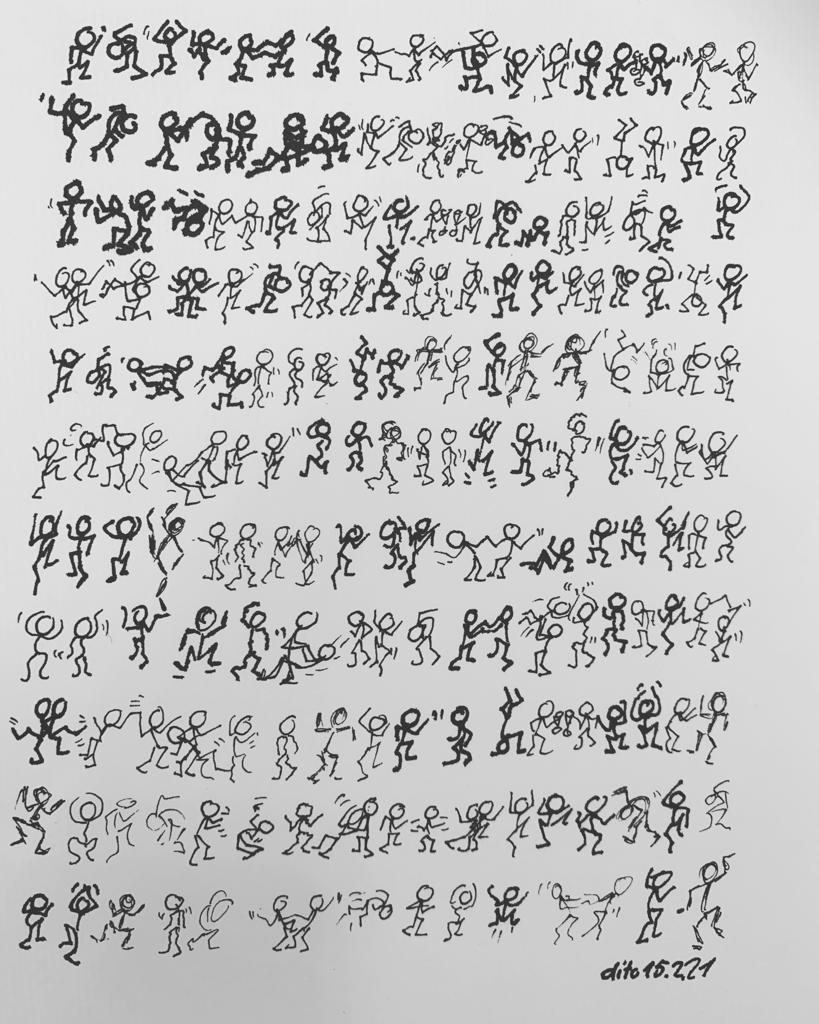 dito 15.2.21